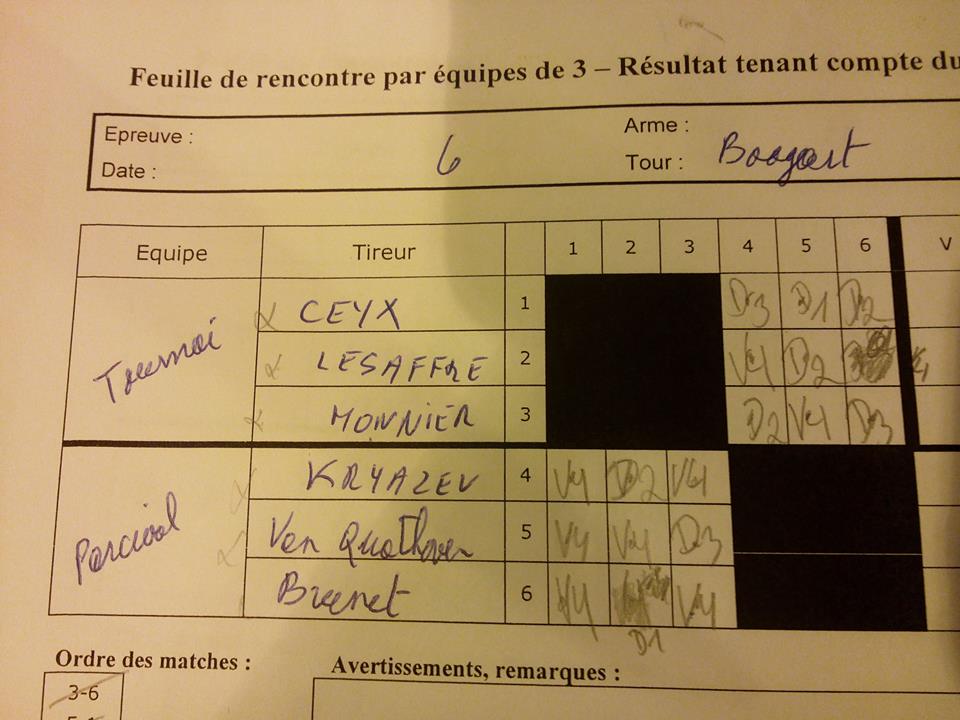 Feuille de rencontre par équipes de 3 – Résultat tenant compte du
Epreuve :
Arme :
Date : 6
Tour : Boogaert
Equipe Tireur 1 2 3 4 5 6 V
Tournoi
CEYX 1 D3 D1 D2
LESAFFRE 2 V4 D2 V4
MONNIER 3 D2 V4 D3
Percival
KRYAZEV 4 V4 D2 V4
Van Quathoven 5 V4 V4 D3
Brenet 6 V4 V4
D1
Ordre des matches :
Avertissements, remarques :
3-6